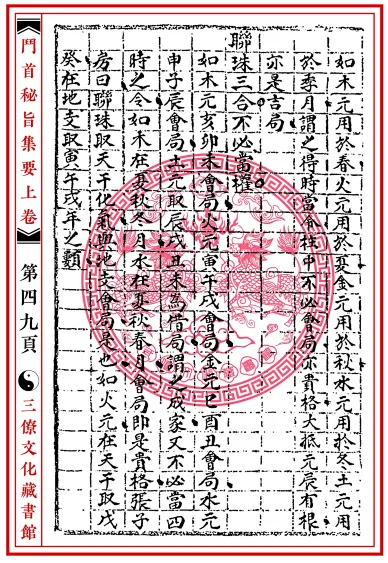 如木元用於春火元用於夏金元用於秋水元用於冬土元用
於季月謂之得時當令柱中不必會局亦貴格大抵元辰有根
亦是吉局
聯珠三合不必當權
如木元亥卯未會局火元寅午戌會局金元巳酉丑會局水元
申子辰會局土元取辰戌丑未為借局謂之成家又不必當四
時之令如木在夏秋冬月水在夏秋春月會局即是貴格張子
房曰聯珠取天干化氣與地支會局是也如火元在天干取戊
癸在地支取寅午戌年之類
鬥首秘旨集要上卷
第四九頁
三僚文化藏書館